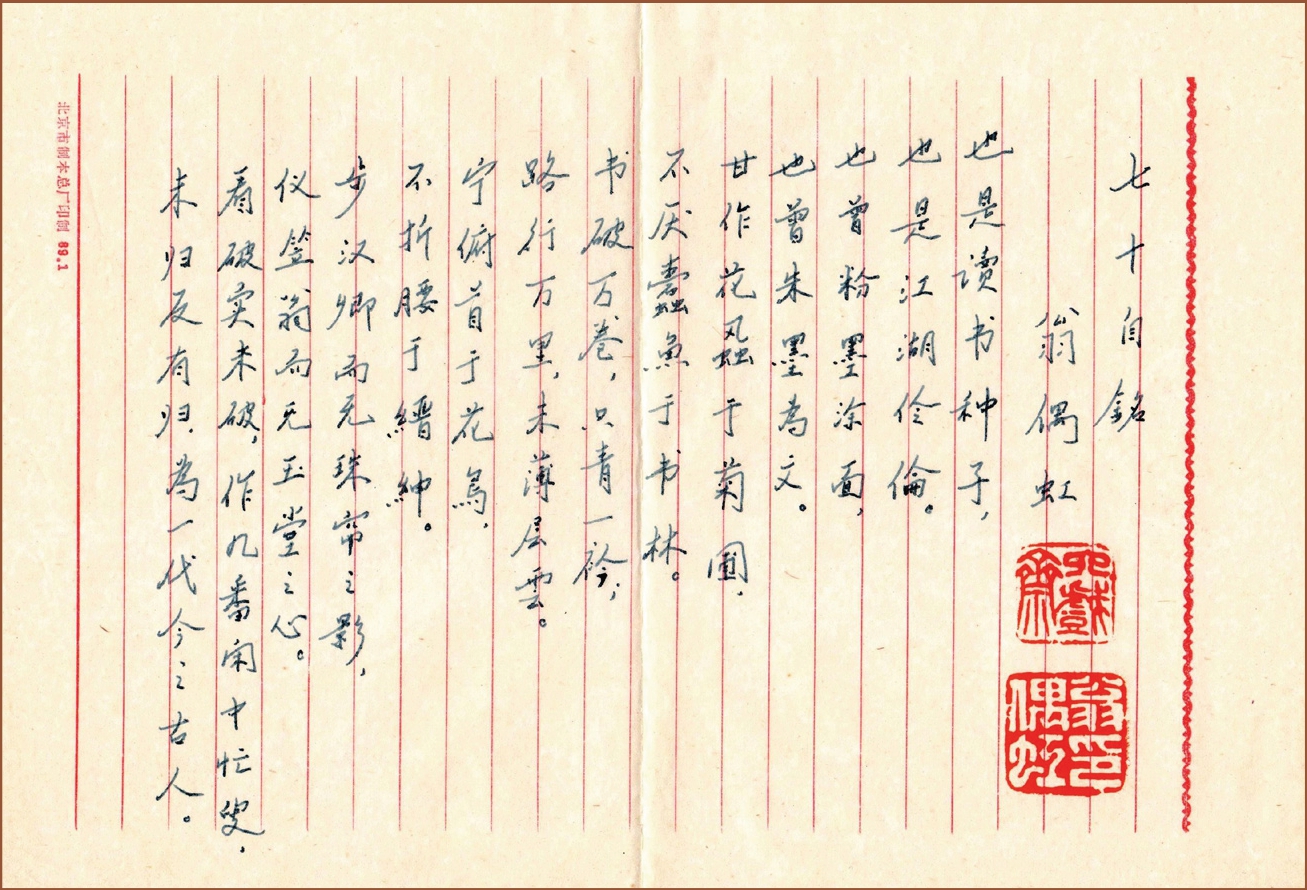 七十自銘
翁偶虹
六戲齋
翁偶虹印
也是读书种子，
也是江湖伶倫。
也曾粉墨涂面，
也曾朱墨為文。
甘作花蝨于菊圃，
不厌蠹魚于书林。
书破万卷，只青一衿，
路行万里，未薄层雲。
宁俯首于花鸟，
不折腰于縉紳。
步汉卿而无珠帘之影，
仪笠翁而无玉堂之心。
看破实未破，作几番闲中忙叟，
未归反有归，為一代今之古人。
北京市制本总厂印制 89.1